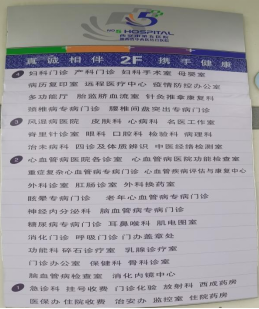 5
HOSPITAL
真诚相伴 2F 携手健康
4 妇科门诊 产科门诊 妇科手术室 母婴室
病历复印室 远程医疗中心 疫情防控办公室
多功能厅 胎监肺血流室 针灸推拿康复科
颈椎病专病门诊 腰椎间盘突出专病门诊
3 风湿病医院 皮肤科 心病科 名医工作室
脊里针诊室 眼科 口腔科 检验科 病理科
治未病科 四诊及体质辨识 中医经络检测室
2 心血管病医院各诊室 心血管病医院功能检查室
重症复杂心血管病专病门诊 心血管疾病评估与康复中心
外科诊室 肛肠诊室 外科换药室
眩晕专病门诊 老年心血管病专病门诊
神经内分泌科 脑血管病专病门诊
糖尿病专病门诊 耳鼻喉科 肌电图室
消化门诊 呼吸门诊 门办盖章处
功能科 碎石诊疗室 乳腺诊疗室
门诊办公室 保健科 骨科诊室
脑血管病检查室 消化内镜中心
1 急诊科 挂号收费 门诊化验 放射科 西成药房
医保办 住院收费 治安办 监控室 住院药房